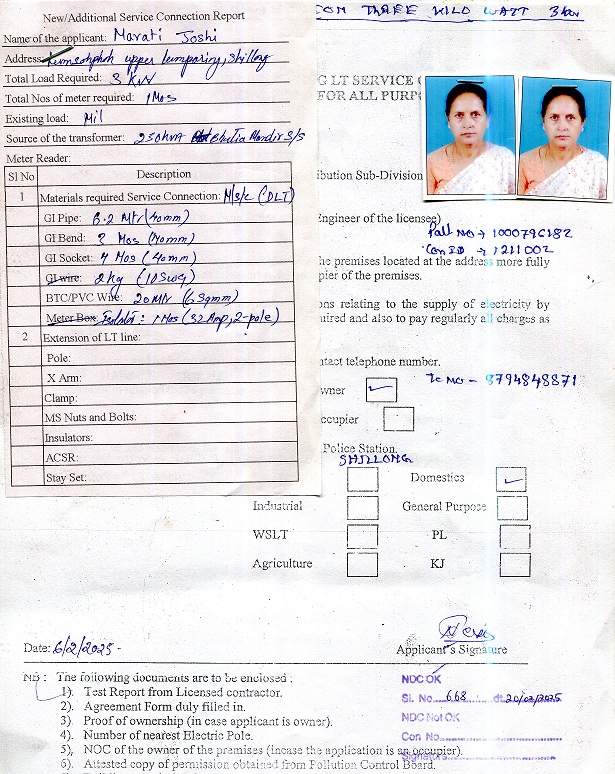 New/Additional Service Connection Report
Name of the applicant: Marati Joshi
Address: Lumsohphoh upper Lumparing, Shillong
Total Load Required: 3 KW
Total Nos of meter required: 1 Nos
Existing load: Nil
Source of the transformer: 250KVA Bhutia Mandir S/S
Meter Reader:
Sl No Description
1 Materials required Service Connection: M/s/c (DLT)
GI Pipe: 6.2 Mtr (40mm)
GI Bend: 2 Nos (40mm)
GI Socket: 4 Nos (40mm)
GI wire: 2 kg (10 swg)
BTC/PVC Wire: 20 Mtr (6 Sqmm)
Meter Box Isolator: 1 Nos (32 Amp, 2-pole)
2 Extension of LT line:
Pole:
X Arm:
Clamp:
MS Nuts and Bolts:
Insulators:
ACSR:
Stay Set:
CON THREE KILO WATT 3 kw
G LT SERVICE
FOR ALL PURPO
ibution Sub-Division
Engineer of the licensee)
1000796182
Con ID → 1211002
he premises located at the address more fully
pier of the premises.
ons relating to the supply of electricity by
uired and also to pay regularly all charges as
ntact telephone number.
wner Te No - 8794848871
ccupier
Police Station.
SHILLONG
Domestics
Industrial General Purpose
WSLT PL
Agriculture KJ
Date: 6/2/2025
Applicant's Signature
NB : The following documents are to be enclosed :
1). Test Report from Licensed contractor.
2). Agreement Form duly filled in.
3). Proof of ownership (in case applicant is owner).
4). Number of nearest Electric Pole.
5), NOC of the owner of the premises (incase the application is an occupier).
6). Attested copy of permission obtained from Pollution Control Board.
NDC OK
Sl. No. 668 dt. 20/02/2025
NDC Not OK
Con No.
Signature